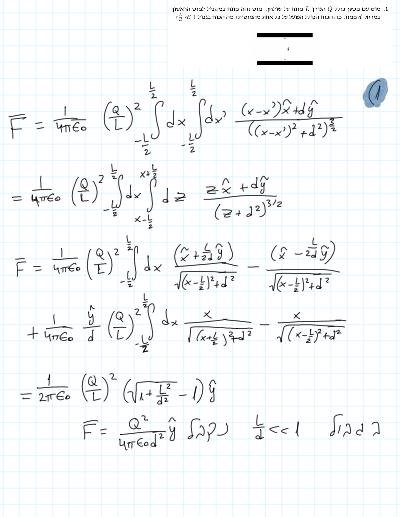 (1)
F̅ = 1/4πε₀ (Q/L)² ∫_{-L/2}^{L/2} dx ∫_{-L/2}^{L/2} dx' ((x-x')x̂+dŷ)/((x-x')²+d²)^{3/2}
= 1/4πε₀ (Q/L)² ∫_{-L/2}^{L/2} dx ∫_{x-L/2}^{x+L/2} dz (zx̂+dŷ)/(z+d²)^{3/2}
F̅ = 1/4πε₀ (Q/L)² ∫_{-L/2}^{L/2} dx (x̂+L/2d ŷ)/√((x-L/2)²+d²) - (x̂-L/2d ŷ)/√((x-L/2)²+d²)
+ 1/4πε₀ ŷ/d (Q/L)² ∫_{-L/2}^{L/2} dx x/√((x+L/2)²+d²) - x/√((x-L/2)²+d²)
= 1/2πε₀ (Q/L)² (√(1+L²/d²) - 1) ŷ
בגבול L/d <<1 נקבל F̅ = Q²/4πε₀d² ŷ